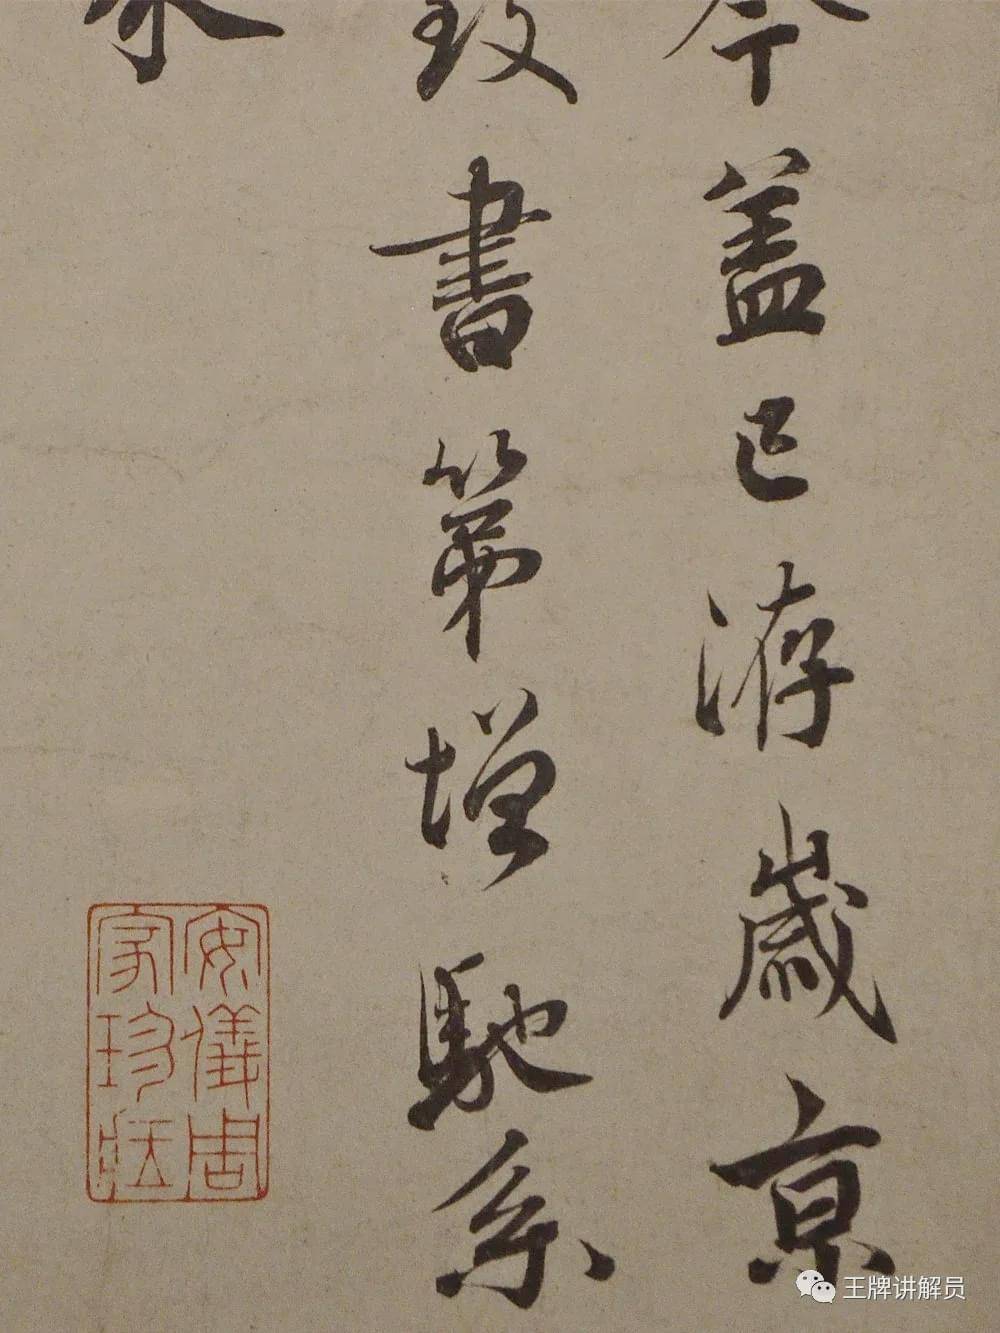 今蓋已洊歲京
致書第增馳系
安儀周
家珍藏
王牌讲解员